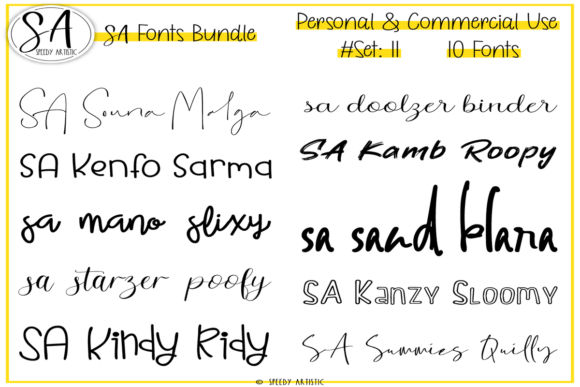 SA
SPEEDY ARTISTIC
SA Fonts Bundle
Personal & Commercial Use
#Set: 11 10 Fonts
SA Souna Malga
SA Kenfo Sarma
sa mano slixy
sa starzer poofy
SA Kindy Ridy
sa doolzer binder
SA Kamb Roopy
sa sand klara
SA Kanzy Sloomy
SA Summies Quilly
© SPEEDY ARTISTIC